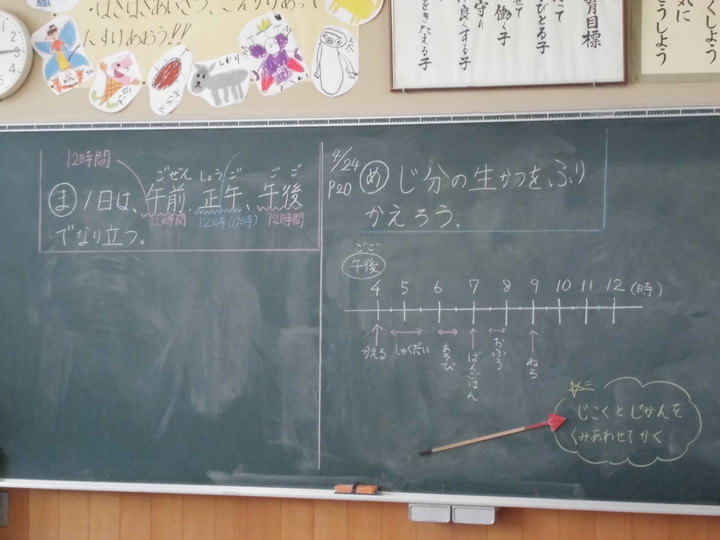 ・はきはきあいさつ、こえかけあって
たすけあおう!!
育目標
たて
ひとる子
せて
働く子
守り
良くする子
をきたえる子
くしよう
気に
こうしよう
12時間
ごぜん しょうご ごご
ま 1日は、午前、正午、午後
12時間 12時(0時) 12時間
でなり立つ。
4/24
P20
め じ分の生かつを、ふり
かえろう。
ごご
午後
4 5 6 7 8 9 10 11 12 (時)
かえる
しゅくだい
あそび
ばんごはん
おふろ
ねる
じこくとじかんを
くみあわせてかく